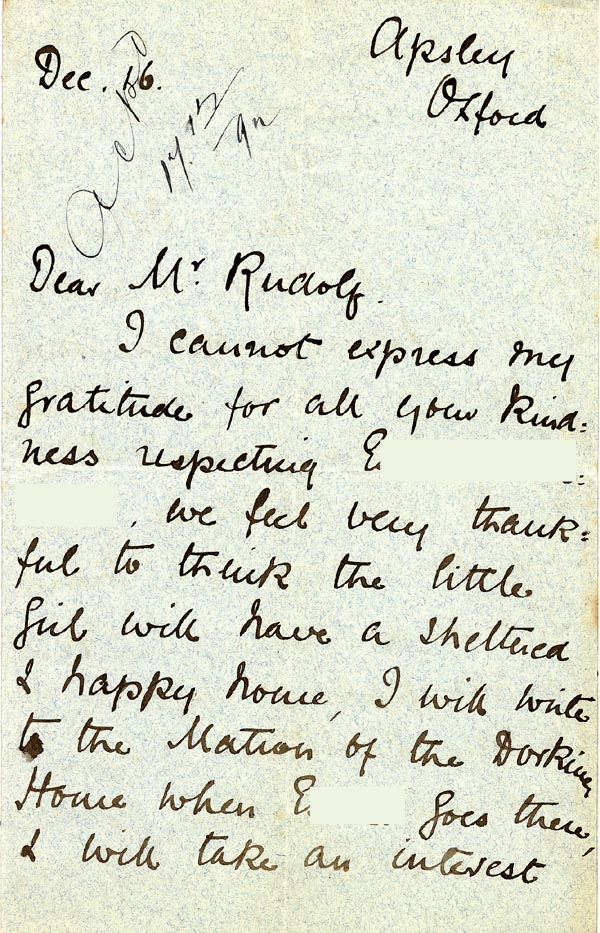 Apsley
Oxford
Dec. 16.
Ackd
17/12/92
Dear Mr. Rudolf.
I cannot express my
gratitude for all your kind=
ness respecting E
, we feel very thank=
ful to think the little
girl will have a sheltered
& happy home, I will write
to the Matron of the Dorking
Home when E goes there,
& will take an interest